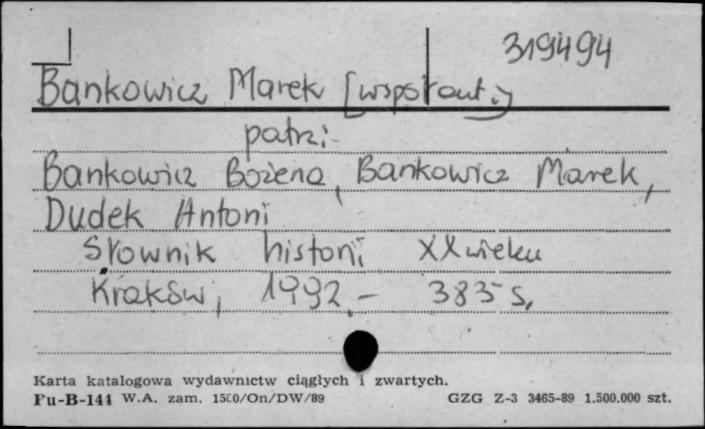 319494
Bankowicz Marek [współaut.]
patrz:
Bankowicz Bożena, Bankowicz Marek,
Dudek Antoni
Słownik historii XX wieku
Kraków, 1992, - 383 s,
Karta katalogowa wydawnictw ciągłych i zwartych.
Pu-B-144 W.A. zam. 1500/On/DW/89 GZG Z-3 3465-89 1.500.000 szt.